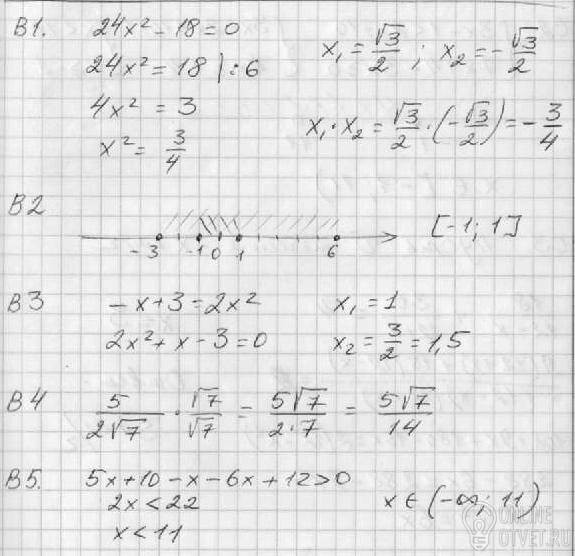 B1. 24x² - 18 = 0
24x² = 18 | : 6
4x² = 3
x² = 3/4
x₁ = √3/2 ; x₂ = -√3/2
x₁ · x₂ = √3/2 · (-√3/2) = -3/4
B2 -3 -1 0 1 6 [-1; 1]
B3 -x + 3 = 2x² x₁ = 1
2x² + x - 3 = 0 x₂ = 3/2 = 1,5
B4 5/(2√7) · √7/√7 = 5√7/(2·7) = 5√7/14
B5. 5x + 10 - x - 6x + 12 > 0
2x < 22 x ∈ (-∞; 11)
x < 11
ONLINE
OTVET.RU